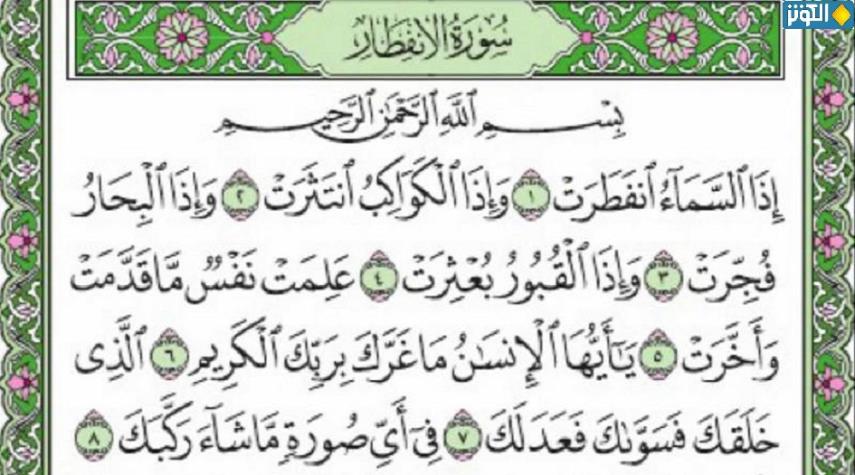 الكوثر
سُورَةُ الِانفِطَارِ
بِسْمِ ٱللَّهِ ٱلرَّحْمَٰنِ ٱلرَّحِيمِ
إِذَا ٱلسَّمَآءُ ٱنفَطَرَتْ ١ وَإِذَا ٱلْكَوَاكِبُ ٱنتَثَرَتْ ٢ وَإِذَا ٱلْبِحَارُ
فُجِّرَتْ ٣ وَإِذَا ٱلْقُبُورُ بُعْثِرَتْ ٤ عَلِمَتْ نَفْسٌ مَّا قَدَّمَتْ
وَأَخَّرَتْ ٥ يَٰٓأَيُّهَا ٱلْإِنسَٰنُ مَا غَرَّكَ بِرَبِّكَ ٱلْكَرِيمِ ٦ ٱلَّذِى
خَلَقَكَ فَسَوَّىٰكَ فَعَدَلَكَ ٧ فِىٓ أَىِّ صُورَةٍ مَّا شَآءَ رَكَّبَكَ ٨